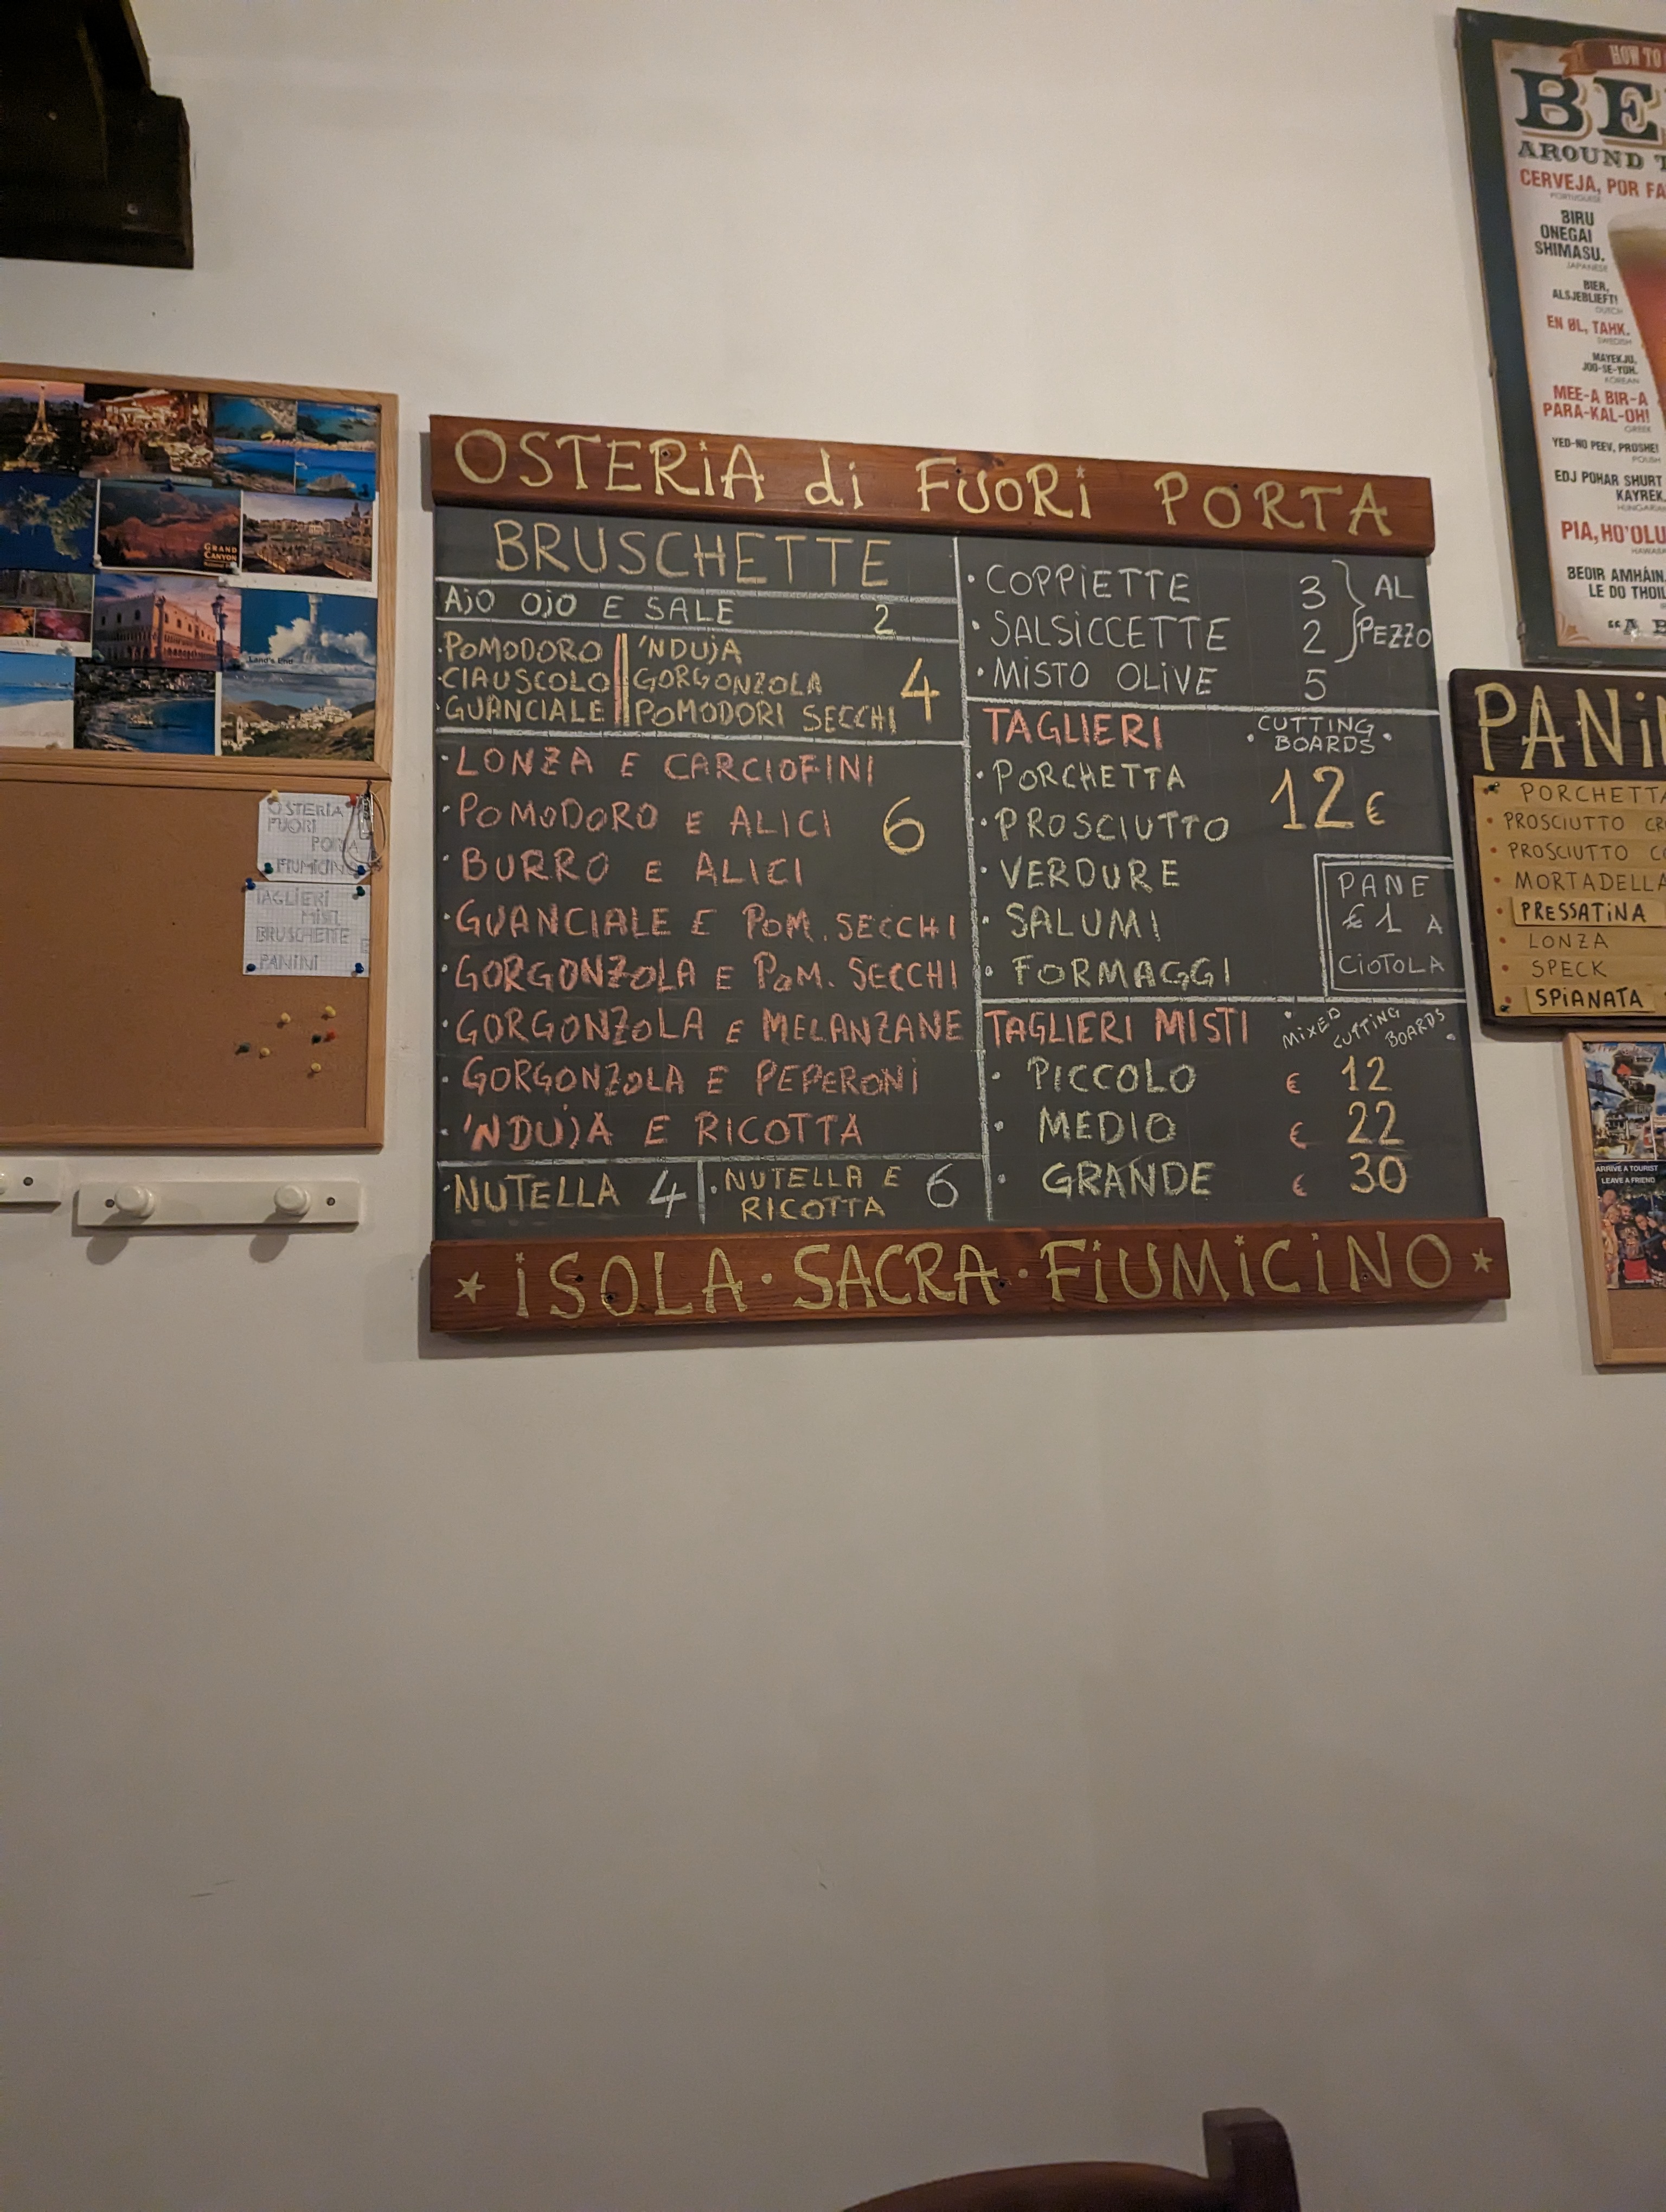 OSTERiA di FUORi PORTA
BRUSCHETTE
AJO OJO E SALE 2
·POMODORO
·CIAUSCOLO
·GUANCIALE
'NDUJA
GORGONZOLA
POMODORI SECCHI
4
·LONZA E CARCIOFINI
·POMODORO E ALICI
·BURRO E ALICI
·GUANCIALE E POM. SECCHI
·GORGONZOLA E POM. SECCHI
·GORGONZOLA E MELANZANE
·GORGONZOLA E PEPERONI
·'NDUJA E RICOTTA
6
·NUTELLA 4
·NUTELLA E
RICOTTA
6
·COPPIETTE 3
·SALSICCETTE 2
AL
PEZZO
·MISTO OLIVE 5
TAGLIERI
·CUTTING
BOARDS·
·PORCHETTA
·PROSCIUTTO
·VERDURE
·SALUMI
·FORMAGGI
12 €
PANE
€ 1 A
CIOTOLA
TAGLIERI MISTI
·MIXED CUTTING BOARDS·
· PICCOLO € 12
· MEDIO € 22
· GRANDE € 30
★ iSOLA · SACRA · FiUMiCiNO ★
OSTERIA
FUORI
PORTA
FIUMICINO
TAGLIERI
MISTI
BRUSCHETTE E
PANINI
GRAND
CANYON
Land's End
HOW TO
BE
AROUND T
CERVEJA, POR FA
PORTUGUESE
BIRU
ONEGAI
SHIMASU.
JAPANESE
BIER,
ALSJEBLIEFT!
DUTCH
EN ØL, TAHK.
SWEDISH
MAYEKJU,
JOO-SE-YOH.
KOREAN
MEE-A BIR-A
PARA-KAL-OH!
GREEK
YED-NO PEEV, PROSHE!
POLISH
EDJ POHAR SHURT
KAYREK.
HUNGARIAN
PIA, HO'OLU
HAWAIIAN
BEOIR AMHÁIN,
LE DO THOIL
"A B
PANiN
PORCHETTA
• PROSCIUTTO CR
• PROSCIUTTO CO
• MORTADELLA
• PRESSATiNA
• LONZA
• SPECK
• SPiANATA
ARRIVE A TOURIST
LEAVE A FRIEND